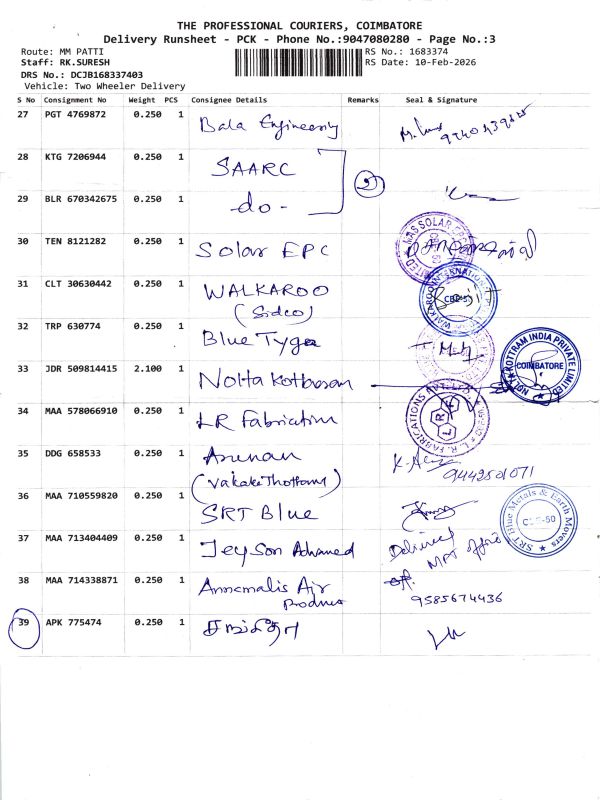 THE PROFESSIONAL COURIERS, COIMBATORE
Delivery Runsheet - PCK - Phone No.:9047080280 - Page No.:3
Route: MM PATTI RS No.: 1683374
Staff: RK.SURESH RS Date: 10-Feb-2026
DRS No.: DCJB168337403
Vehicle: Two Wheeler Delivery
S No Consignment No Weight PCS Consignee Details Remarks Seal & Signature
27 PGT 4769872 0.250 1 Bala Engineering
28 KTG 7206944 0.250 1 SAARC
2
29 BLR 670342675 0.250 1 -do-
30 TEN 8121282 0.250 1 Solar EPC
31 CLT 30630442 0.250 1 WALKAROO
(Sidco)
32 TRP 630774 0.250 1 Blue Tyga
33 JDR 509814415 2.100 1 Nolta Kotboran
NOLTA KOTTRAM INDIA PRIVATE LIMITED
COIMBATORE
34 MAA 578066910 0.250 1 LR Fabrication
L.R. FABRICATIONS PVT. LTD.
L R F
35 DDG 658533 0.250 1 Arunan
(Vakake Thottam) 9442501071
36 MAA 710559820 0.250 1 SRT Blue
SRT Blue Metals & Earth Movers
CBE-50
37 MAA 713404409 0.250 1 Jeyson Advanced Delivered
MPT
38 MAA 714338871 0.250 1 Annamalis Air
Produs 9585674436
39 APK 775474 0.250 1